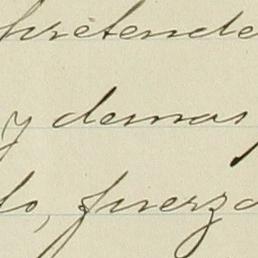 pretende
y demas
lo, fuerza